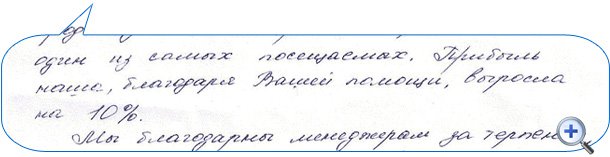 один из самых посещаемах. Прибыль
наша, благодаря Вашей помощи, выросла
на 10%.
Мы благодарны менеджерам за терпен